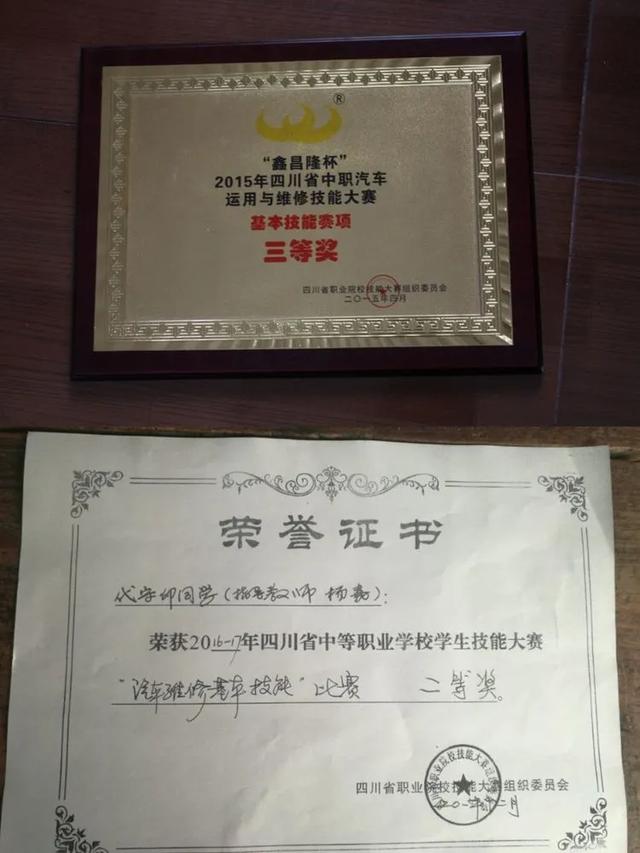 ®
“鑫昌隆杯”
2015年四川省中职汽车
运用与维修技能大赛
基本技能赛项
三等奖
四川省职业院校技能大赛组织委员会
二〇一五年四月
荣誉证书
同学（指导教师 杨）：
荣获2016-17年四川省中等职业学校学生技能大赛
“汽车维修基本技能”比赛 二等奖。
四川省职业院校技能大赛组织委员会
二月